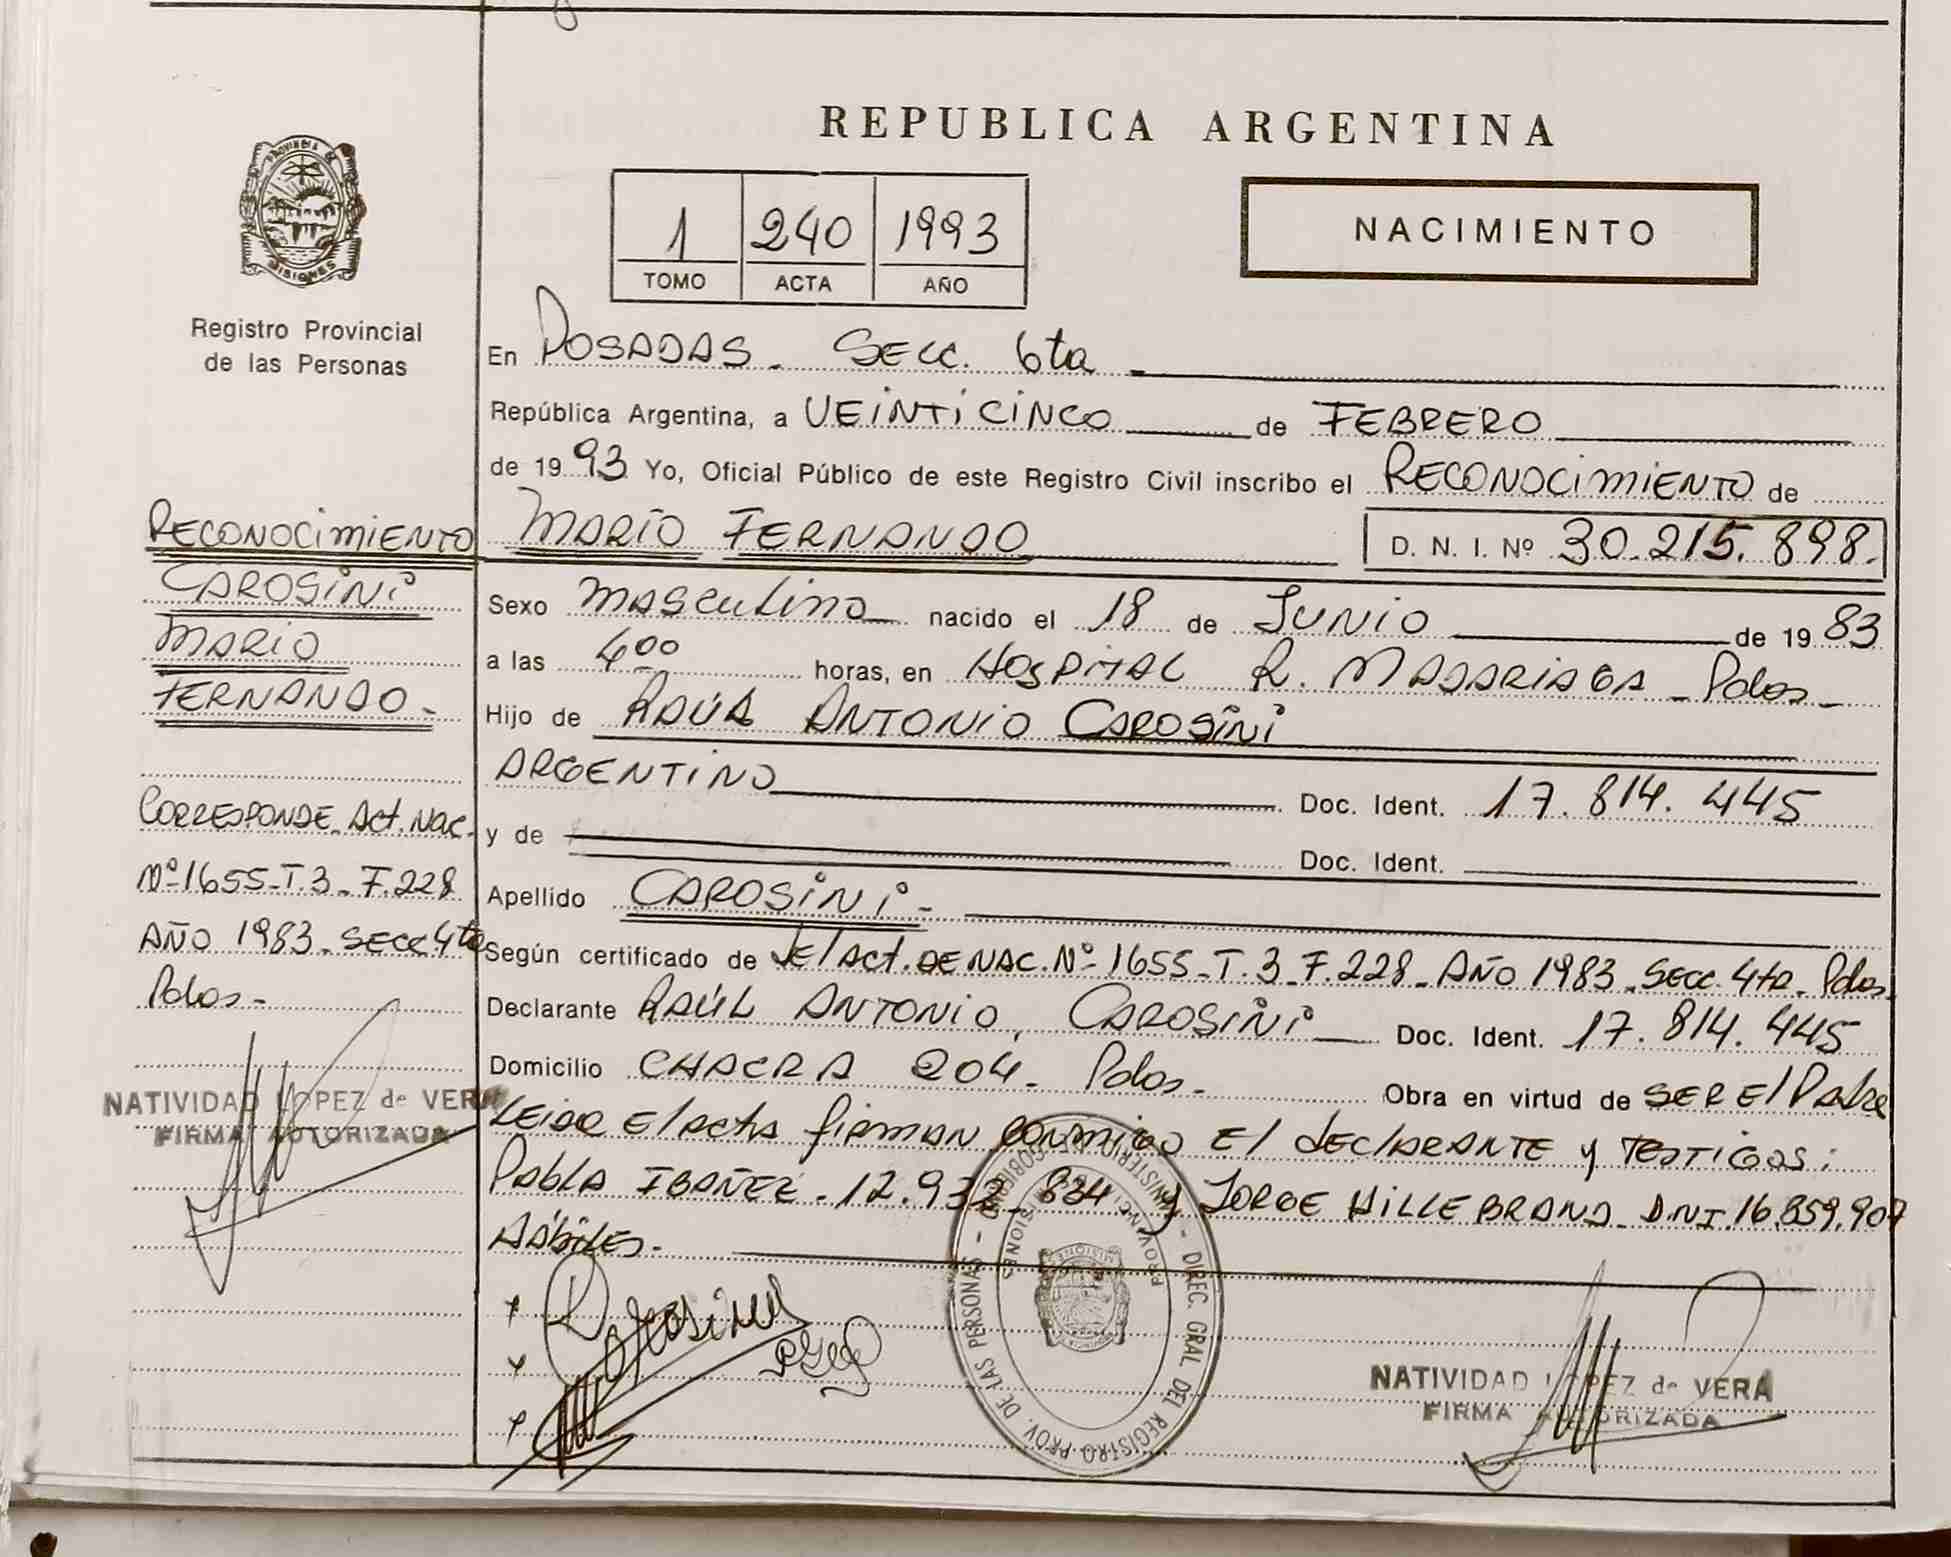 REPUBLICA ARGENTINA
PROVINCIA DE
MISIONES
Registro Provincial
de las Personas
1 240 1993
TOMO ACTA AÑO
NACIMIENTO
En POSADAS - SECC. 6ta -
República Argentina, a VEINTICINCO de FEBRERO
de 1993 Yo, Oficial Público de este Registro Civil inscribo el RECONOCIMIENTO de
MARIO FERNANDO D. N. I. Nº 30.215.898.
Sexo masculino nacido el 18 de JUNIO de 1983
a las 4 00 horas, en HOSPITAL R. MADARIAGA - Pdas -
Hijo de RAÚL ANTONIO CAROSINI
ARGENTINO Doc. Ident. 17.814.445
y de Doc. Ident.
Apellido CAROSINI -
Según certificado de del Act. DE NAC. Nº 1655 - T. 3 - F. 228 - AÑO 1983 - SECC. 4ta - Pdas.
Declarante RAÚL ANTONIO, CAROSINI Doc. Ident. 17.814.445
Domicilio CHACRA 204 - Pdas - Obra en virtud de SER El Padre
LEIDO El Acta firman conmigo El declarante y TESTIGOS:
Pabla IBAÑEZ - 12.932.834 y JORGE HILLEBRAND - D.N.I 16.859.907
Hábiles -
RECONOCIMIENTO
CAROSINI
MARIO
FERNANDO -
CORRESPONDE Act. Nac.
Nº 1655 - T. 3 - F. 228
AÑO 1983 - SECC 4ta
Pdas -
NATIVIDAD LOPEZ de VERA
FIRMA AUTORIZADA
DIREC. GRAL DEL REGISTRO PROV. DE LAS PERSONAS - MINISTERIO DE GOBIERNO
PROVINCIA MISIONES
NATIVIDAD LOPEZ de VERA
FIRMA AUTORIZADA